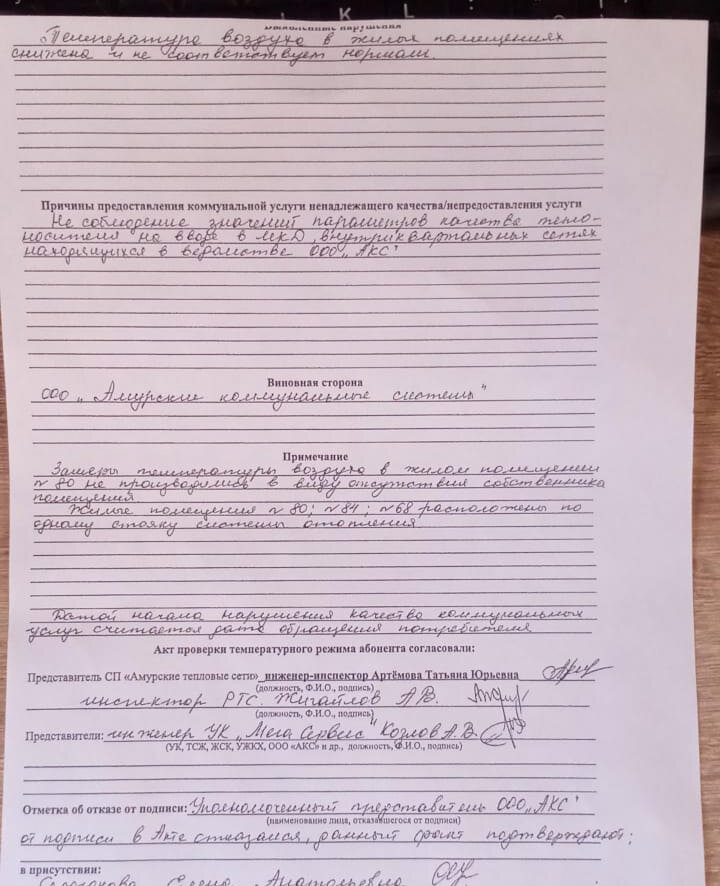 нарушения
Температура воздуха в жилых помещениях
снижена и не соответствует нормам.
Причины предоставления коммунальной услуги ненадлежащего качества/непредоставления услуги
Не соблюдение значений параметров качества тепло-
носителя на вводе в МКД, внутриквартальных сетях
находящихся в ведомстве ООО „АКС"
Виновная сторона
ООО „Амурские коммунальные системы"
Примечание
Замеры температуры воздуха в жилом помещении
№ 80 не производились в виду отсутствия собственника
помещения.
Жилые помещения № 80; № 84; № 68 расположены по
одному стояку системы отопления.
Датой начала нарушения качества коммунальных
услуг считается дата обращения потребителя
Акт проверки температурного режима абонента согласовали:
Представитель СП «Амурские тепловые сети» инженер-инспектор Артёмова Татьяна Юрьевна
(должность, Ф.И.О., подпись)
инспектор РТС. Жигайлов А.В.
(должность, Ф.И.О., подпись)
Представители: инженер УК „Мега Сервис" Козлов А.В.
(УК, ТСЖ, ЖСК, УЖКХ, ООО «АКС» и др., должность, Ф.И.О., подпись)
Отметка об отказе от подписи: Уполномоченный представитель ООО „АКС"
(наименование лица, отказавшегося от подписи)
от подписи в Акте отказался, данный факт подтверждают;
в присутствии:
Елена Анатольевна